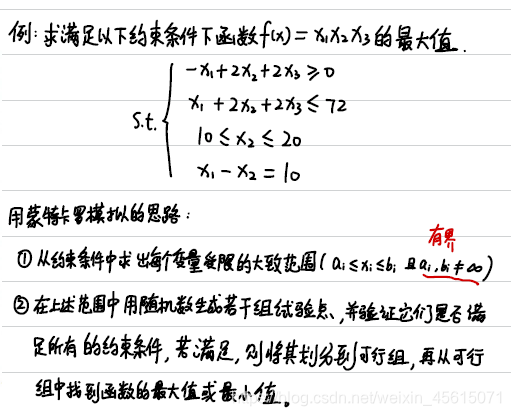 例:求满足以下约束条件下函数f(x)=x₁x₂x₃的最大值.
s.t. { -x₁+2x₂+2x₃≥0
x₁+2x₂+2x₃≤72
10≤x₂≤20
x₁-x₂=10
用蒙特卡罗模拟的思路:
有界
①从约束条件中求出每个变量受限的大致范围(aᵢ≤xᵢ≤bᵢ 且aᵢ,bᵢ≠∞)
②在上述范围中用随机数生成若干组试验点、并验证它们是否满
足所有的约束条件,若满足,则将其划分到可行组,再从可行
组中找到函数的最大值或最小值。
blog.csdn.net/weixin_45615071